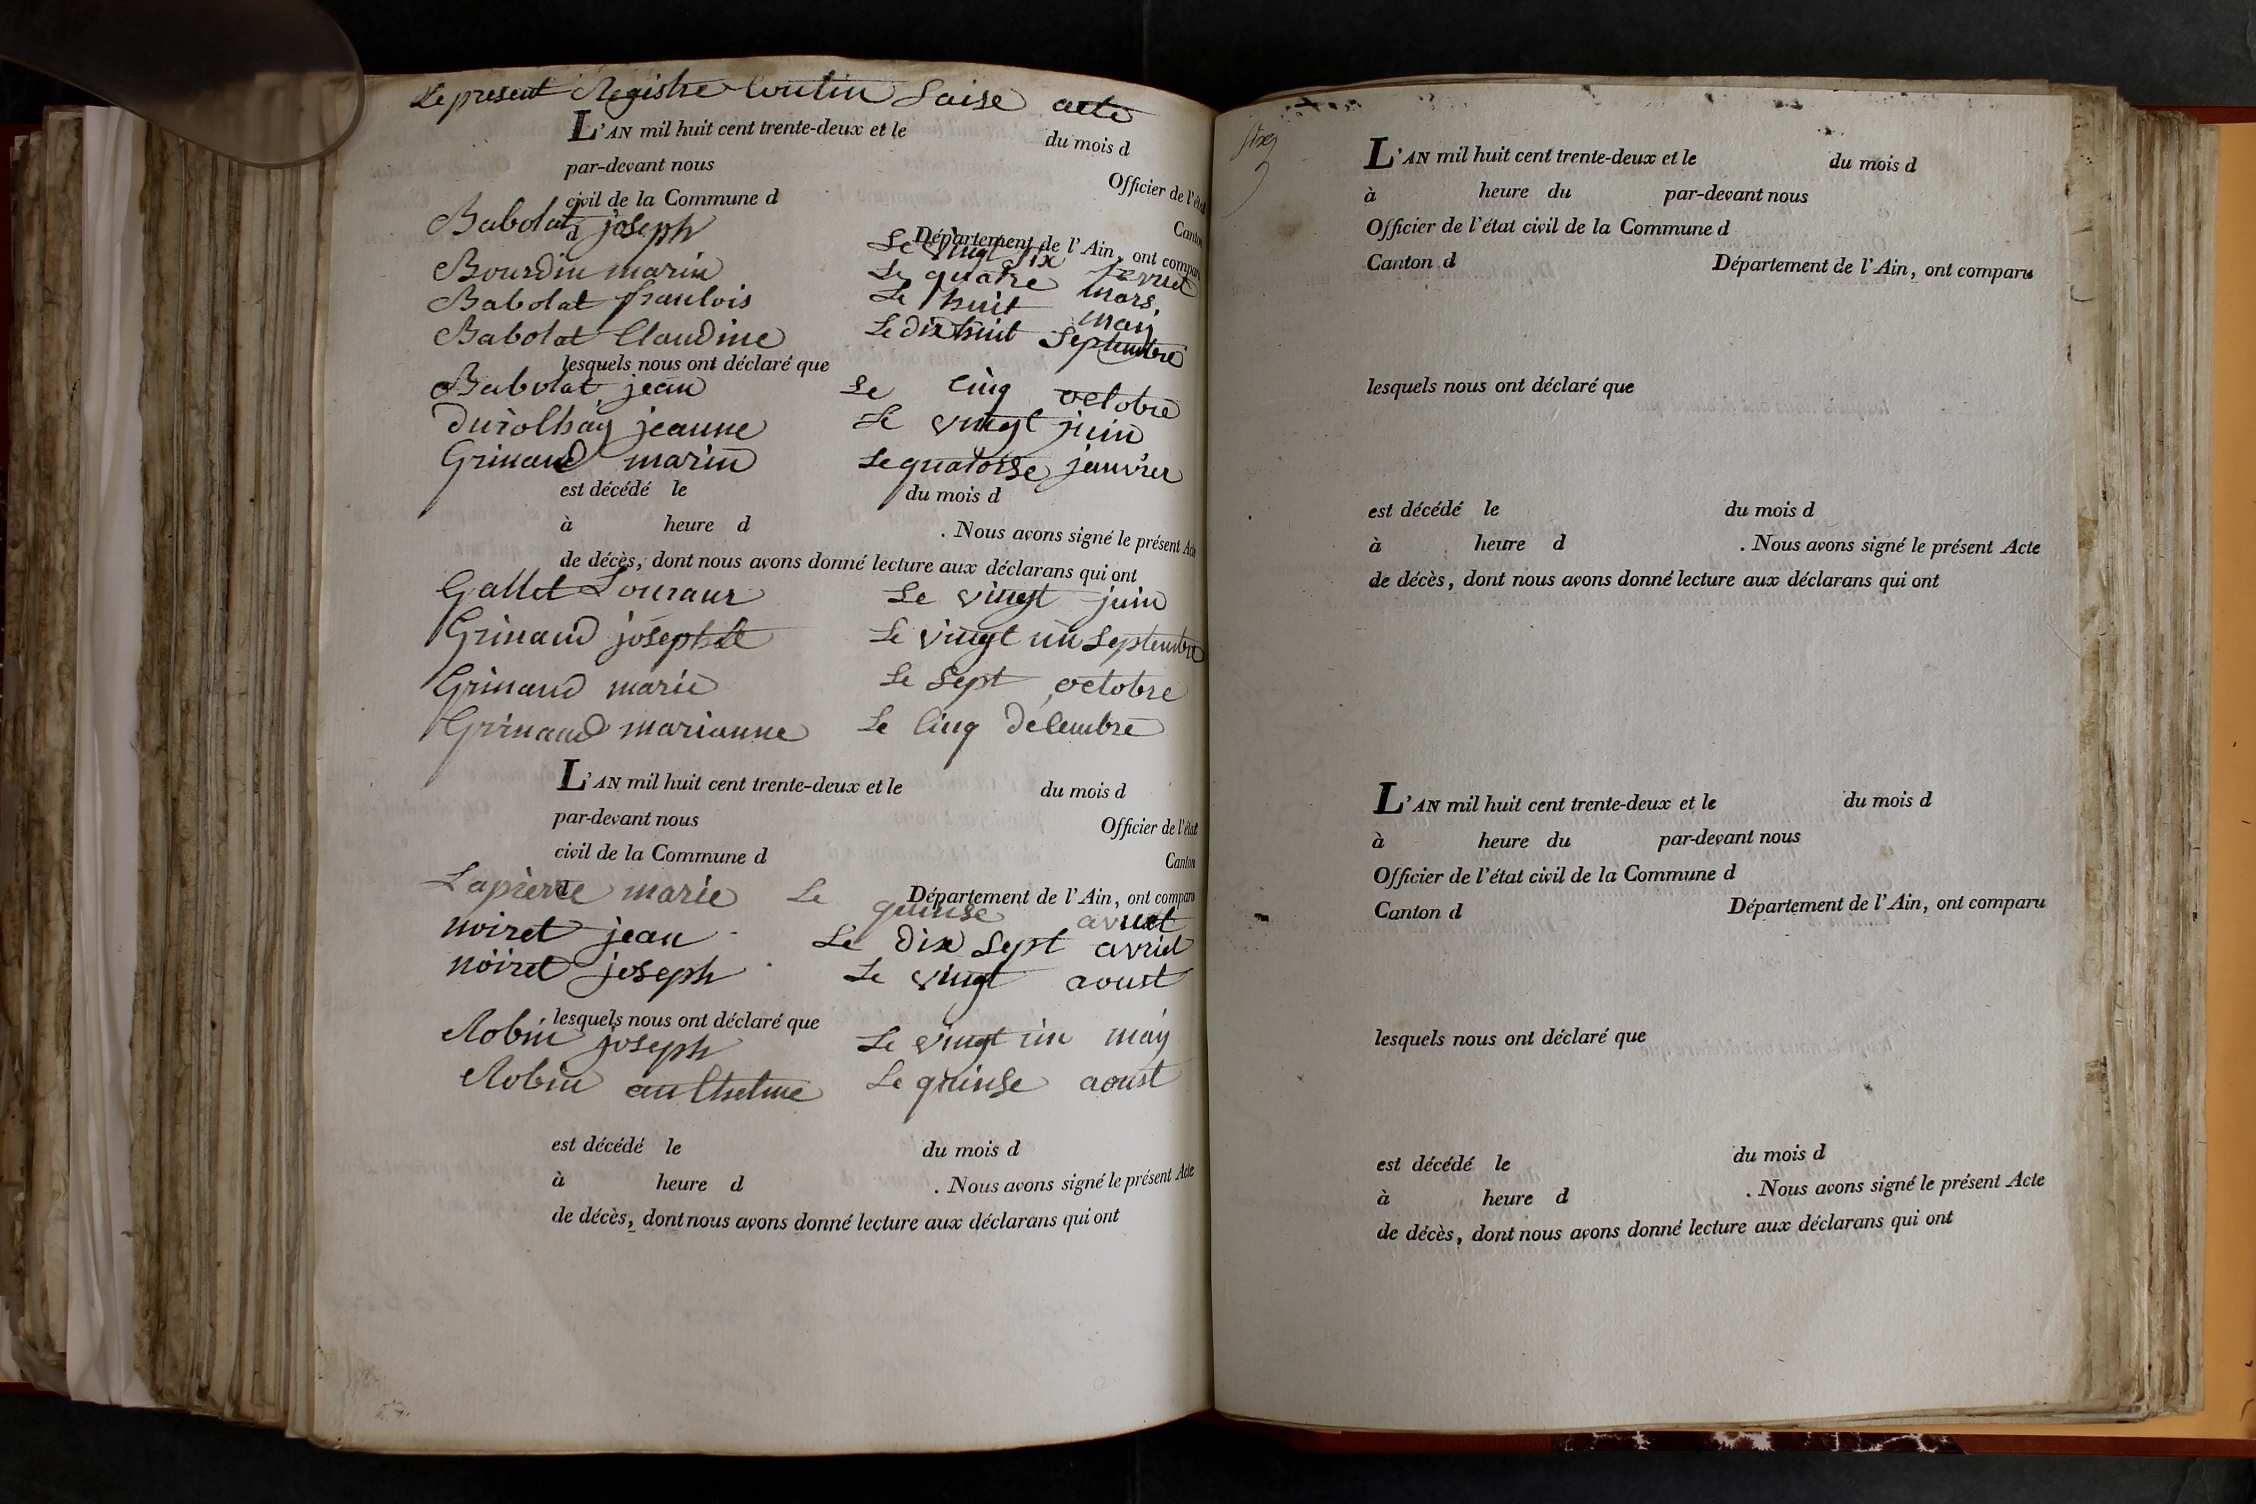 Le present Registre Contin Saise acte
L'AN mil huit cent trente-deux et le du mois d
par-devant nous Officier de l'état
civil de la Commune d Canton
d Département de l'Ain, ont comparu
Babolat joseph Le vingt six fevrié
Bourdin marin Le quatre mars
Babolat franCois Le huit may
Babolat Claudine Le dix huit Septembre
lesquels nous ont déclaré que
Babolat jean Le Cinq octobre
jeanne Le vingt juin
Grinand marin Le quatorse janvier
est décédé le du mois d
à heure d . Nous avons signé le présent Acte
de décès, dont nous avons donné lecture aux déclarans qui ont
Gallet Le vingt juin
Grinand josephte Le vingt un Septembre
Grinand marie Le Sept octobre
Grinand marianne Le Cinq deCembre
L'AN mil huit cent trente-deux et le du mois d
par-devant nous Officier de l'état
civil de la Commune d Canton
d Département de l'Ain, ont comparu
Lapierre marie Le quinse avril
noiret jean Le dix Sept avril
noiret joseph Le vingt aoust
lesquels nous ont déclaré que
Robin joseph Le vingt un may
Robin anthelme Le quinse aoust
est décédé le du mois d
à heure d . Nous avons signé le présent Acte
de décès, dont nous avons donné lecture aux déclarans qui ont
six
L'AN mil huit cent trente-deux et le du mois d
à heure du par-devant nous
Officier de l'état civil de la Commune d
Canton d Département de l'Ain, ont comparu
lesquels nous ont déclaré que
est décédé le du mois d
à heure d . Nous avons signé le présent Acte
de décès, dont nous avons donné lecture aux déclarans qui ont
L'AN mil huit cent trente-deux et le du mois d
à heure du par-devant nous
Officier de l'état civil de la Commune d
Canton d Département de l'Ain, ont comparu
lesquels nous ont déclaré que
est décédé le du mois d
à heure d . Nous avons signé le présent Acte
de décès, dont nous avons donné lecture aux déclarans qui ont